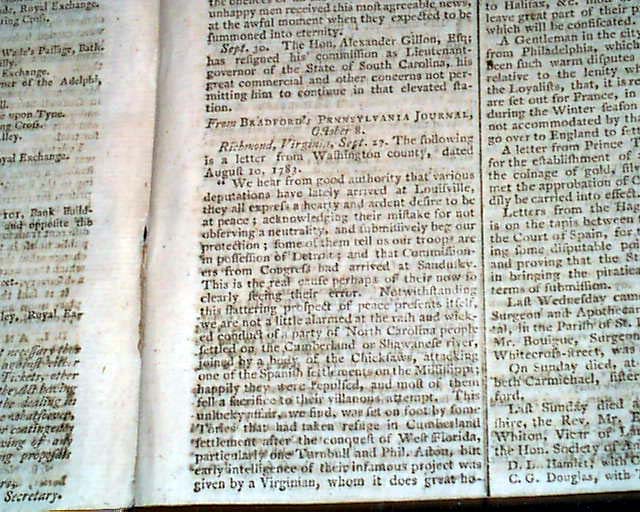 de, Royal Exchange.
ing Cross.
Wade's Passage, Bath.
Exchange.
ner of the Adelphi,
e upon Tyne.
ng Cross.
lley.
oyal Exchange.
Bank Build-
and opposite the
ley, Royal Ex-
t necessary that
Tickets, other
Secretary.
unhappy men received this most agreeable news,
at the awful moment when they expected to be
summoned into eternity.
Sept. 30. The Hon. Alexander Gillon, Esq;
has resigned his commission as Lieutenant-
governor of the State of South Carolina, his
great commercial and other concerns not per-
mitting him to continue in that elevated sta-
tion.
From BRADFORD's PENNSYLVANIA JOURNAL,
October 8.
Richmond, Virginia, Sept. 27. The following
is a letter from Washington county, dated
August 10, 1783.
" We hear from good authority that various
deputations have lately arrived at Louisville,
they all express a hearty and ardent desire to be
at peace; acknowledging their mistake for not
observing a neutrality, and submissively beg our
protection; some of them tell us our troops are
in possession of Detroit; and that Commission-
ers from Congress had arrived at Sandusky.
This is the real cause perhaps of their now so
clearly seeing their error. Notwithstanding
this flattering prospect of peace presents itself,
we are not a little alarmed at the rash and wick-
ed conduct of a party of North Carolina people
settled on the Cumberland or Shawanese river,
joined by a body of the Chicksaws, attacking
one of the Spanish settlements on the Mississippi;
happily they were repulsed, and most of them
fell a sacrifice to their villanous attempt. This
unlucky affair, we find, was set on foot by some
Tories that had taken refuge in Cumberland
settlement after the conquest of West Florida,
particularly one Turnbull and Phil. Alston, but
early intelligence of their infamous project was
given by a Virginian, whom it does great ho-
to Halifax, &c.
leave great part of the
which will be confiscated.
A Gentleman in the city
from Philadelphia, which
been such warm disputes
relative to the lenity w
the Loyalists, that, it is r
are set out for France, in
during the Winter season
not accommodated by tha
go over to England to set
A letter from Prince T
for the establishment of
the coinage of gold, sil
met the approbation of C
dily be carried into effect
Letters from the Hag
is on the tapis between
the Court of Spain, for
ing some disputable po
and paying that the St
in bringing the piratic
terms of submission.
Last Wednesday cam
Surgeon and Apothecar
al, in the Parish of St.
Mr. Bouigue, Surgeon
Whitecross-street, was
On Sunday died, at
beth Carmichael, sister
ford.
Last Sunday died
shire, the Rev. Mr.
Whiton, Vicar of
the Hon. Society of
D. L. Hamlet, with C
C. G. Douglas, with